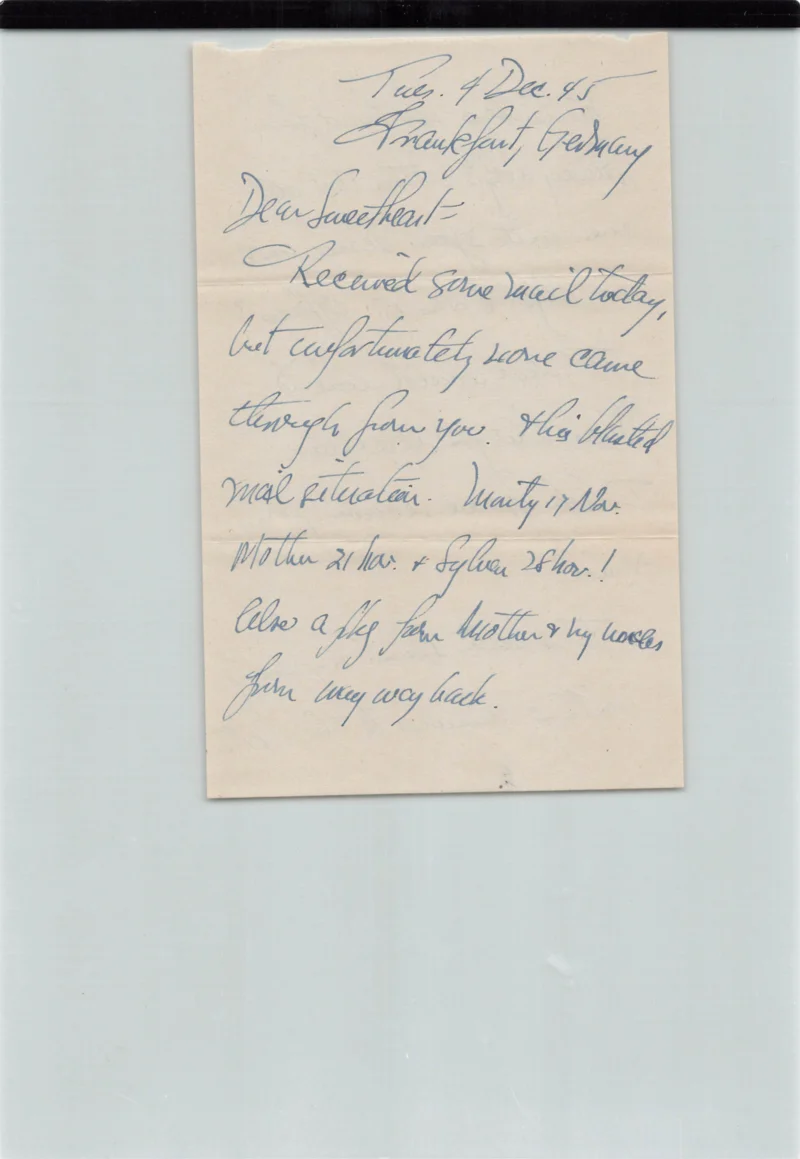 Tues. 4 Dec. 45
Frankfurt, Germany
Dear Sweetheart-
Received some mail today,
but unfortunately none came
through from you. This blasted
mail situation. Marty 17 Nov.
Mother 21 Nov. + 28 Nov.!
Also a pkg from Mother & my
from way way back.